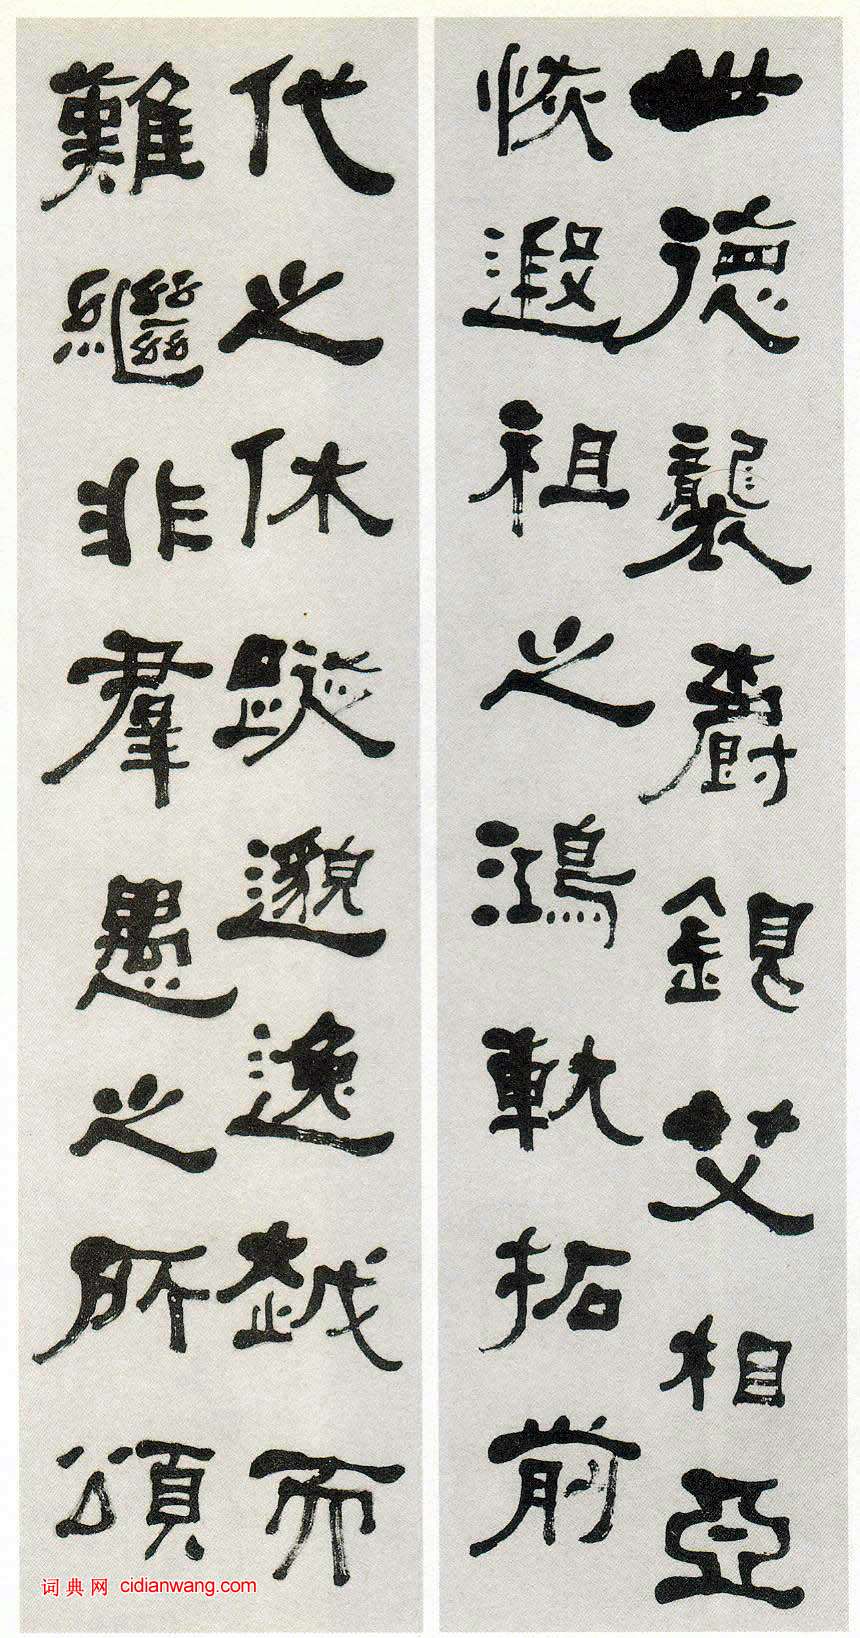 世德襲爵銀艾相亞
恢遐祖之鴻軌拓前
代之休蹤邈逸越而
難繼非羣愚之所頌
词典网 cidianwang.com